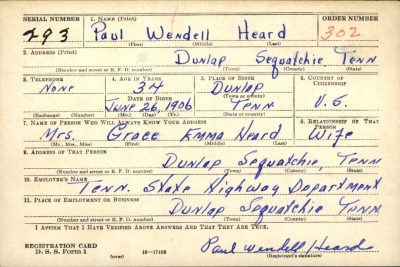 SERIAL NUMBER 1. NAME (Print) ORDER NUMBER
293 Paul Wendell Heard 302
(First) (Middle) (Last)
2. ADDRESS (Print)
Dunlap Sequatchie, Tenn
(Number and street or R. F. D. number) (Town) (County) (State)
3. TELEPHONE 4. AGE IN YEARS 5. PLACE OF BIRTH 6. COUNTRY OF CITIZENSHIP
None 34 Dunlap
DATE OF BIRTH (Town or county)
June 26, 1906 Tenn U.S.
(Exchange) (Number) (Mo.) (Day) (Yr.) (State or country)
7. NAME OF PERSON WHO WILL ALWAYS KNOW YOUR ADDRESS 8. RELATIONSHIP OF THAT PERSON
Mrs. Grace Emma Heard Wife
(Mr., Mrs., Miss) (First) (Middle) (Last)
9. ADDRESS OF THAT PERSON
Dunlap Sequatchie, Tenn
(Number and street or R. F. D. number) (Town) (County) (State)
10. EMPLOYER'S NAME
Tenn. State Highway Department
11. PLACE OF EMPLOYMENT OR BUSINESS
Dunlap Sequatchie Tenn
(Number and street or R. F. D. number) (Town) (County) (State)
I AFFIRM THAT I HAVE VERIFIED ABOVE ANSWERS AND THAT THEY ARE TRUE.
REGISTRATION CARD
D. S. S. Form 1 (over) 16—17105
Paul Wendell Heard
(Registrant's signature)